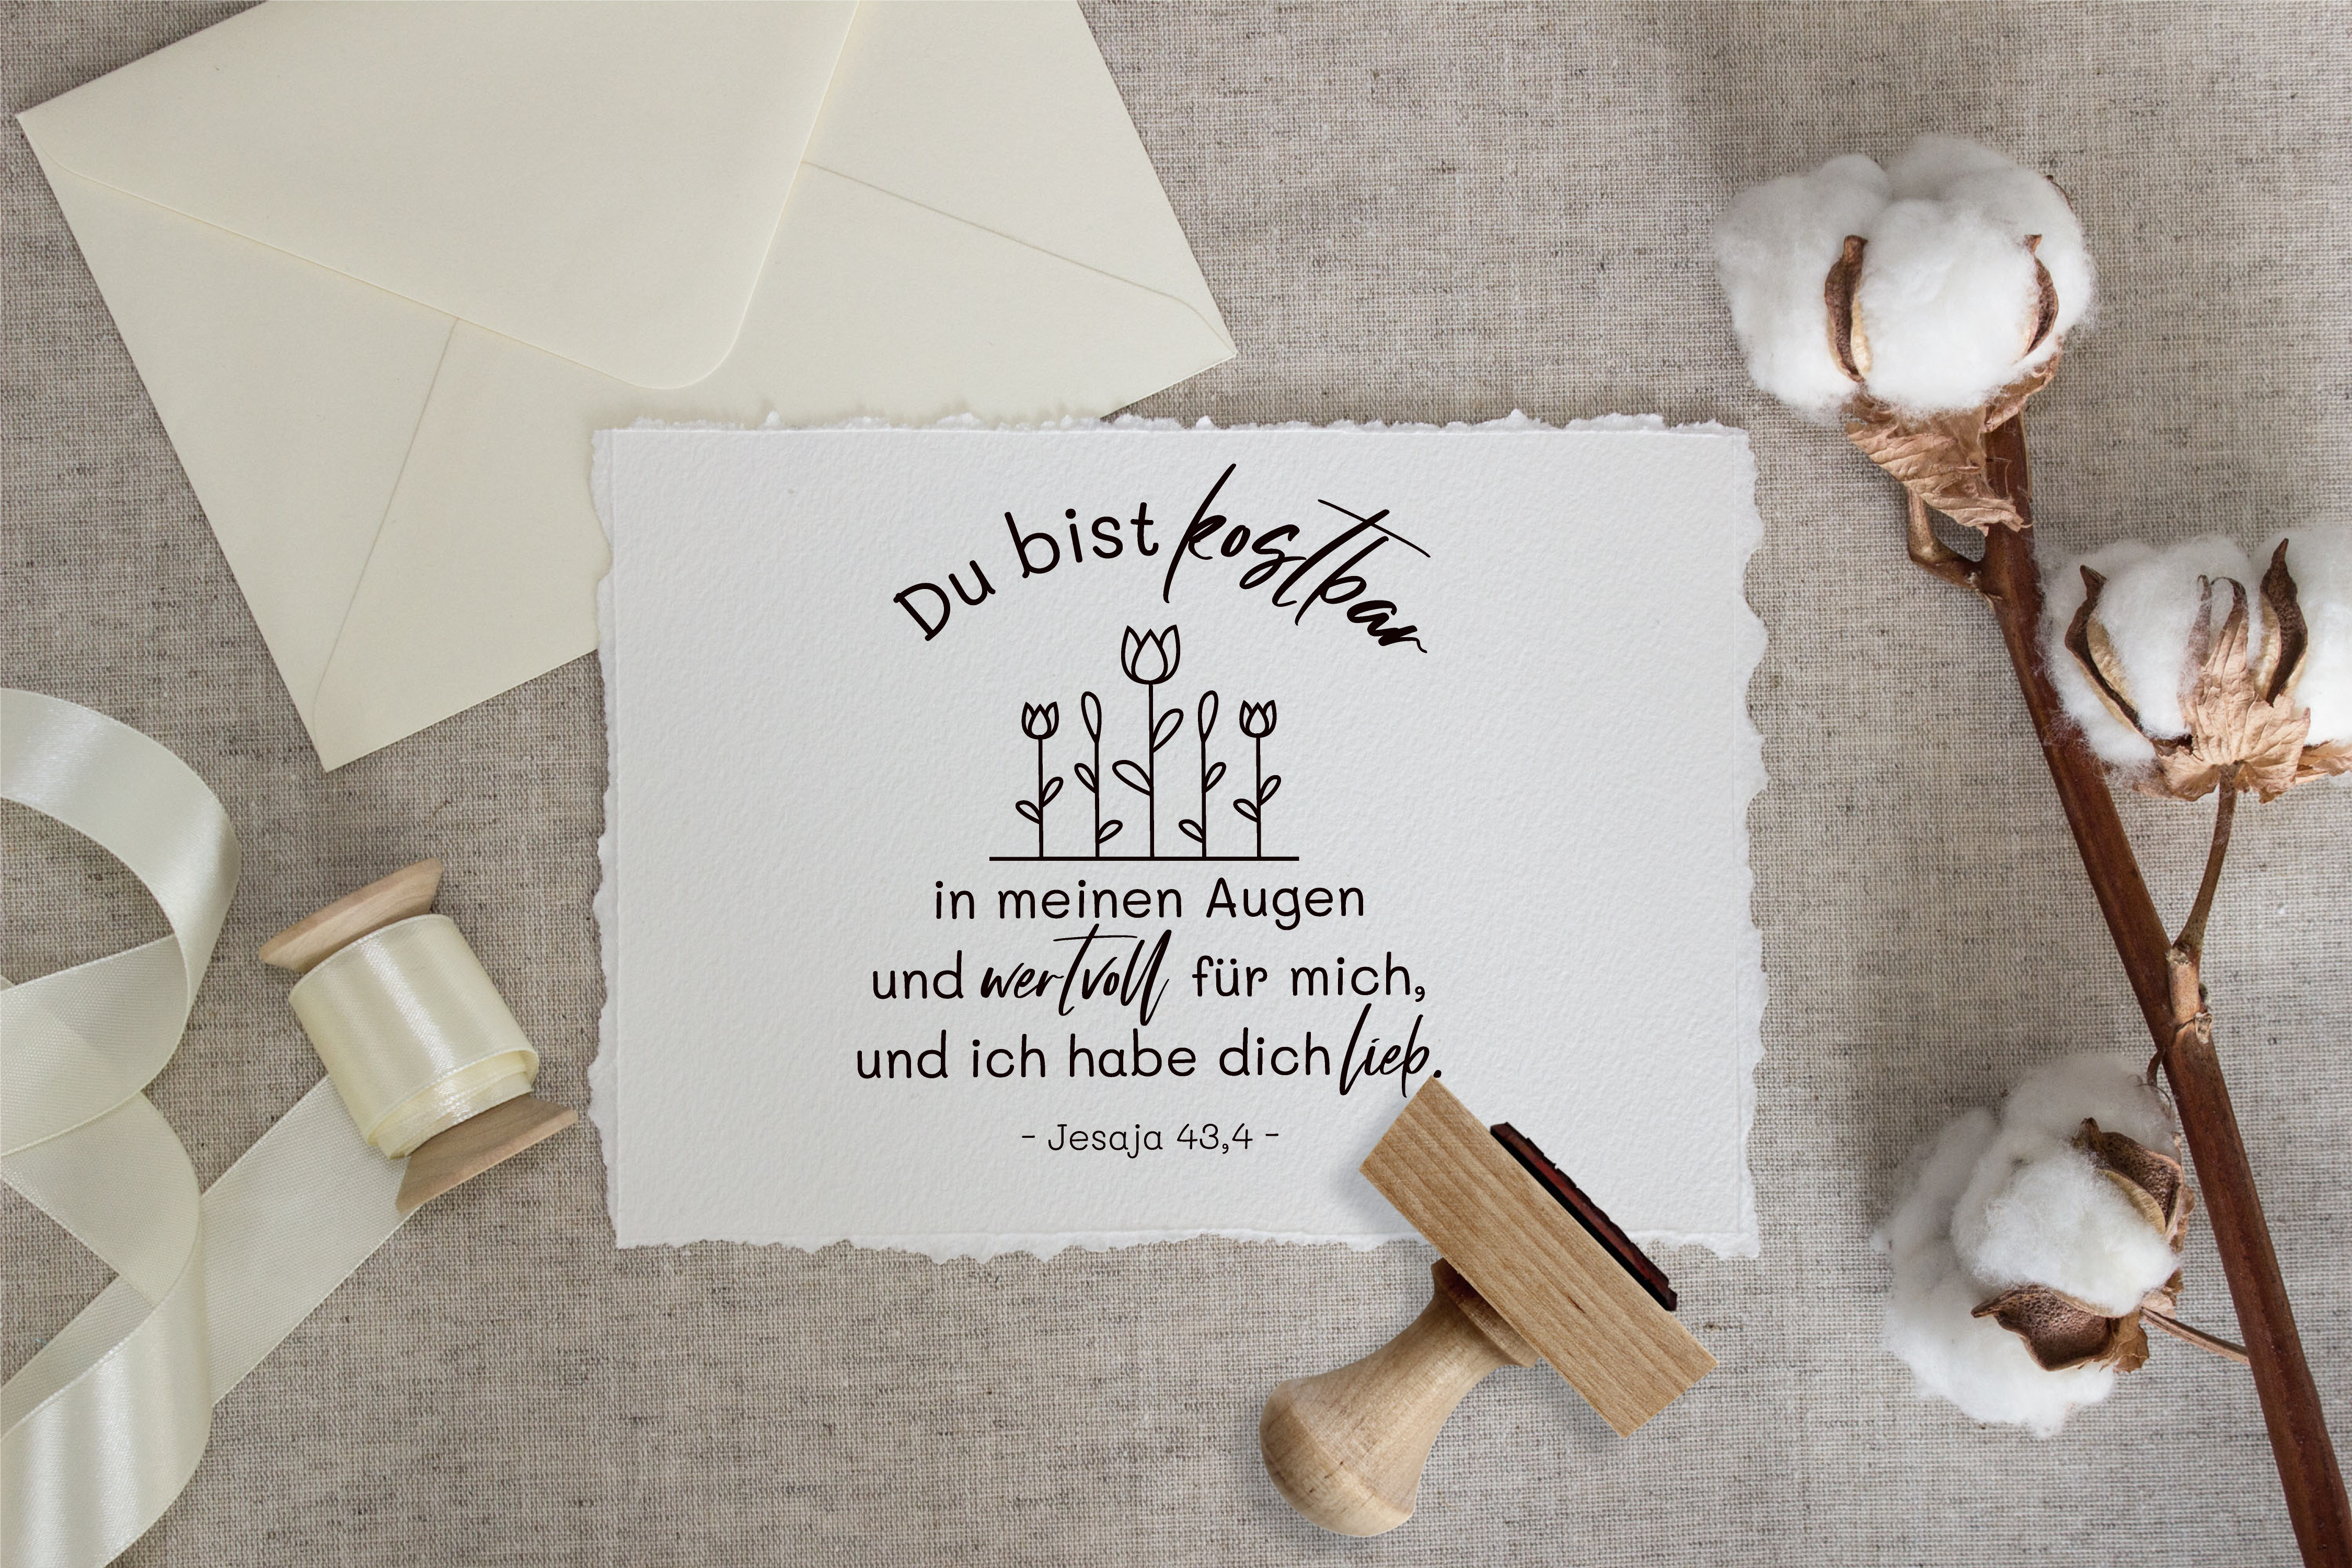 Du bist kostbar
in meinen Augen
und wertvoll für mich,
und ich habe dich lieb.
- Jesaja 43,4 -